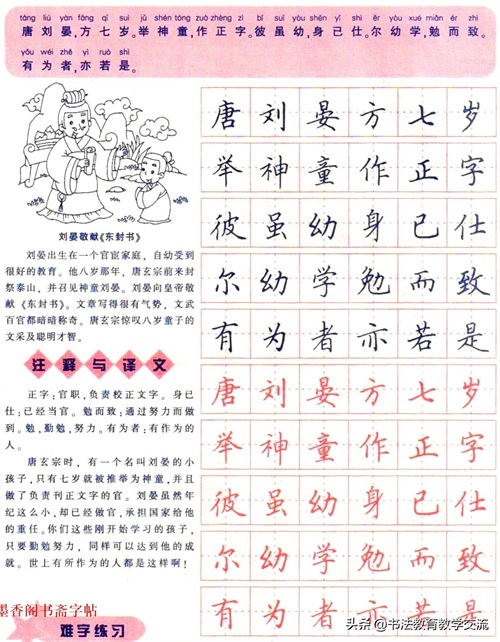 táng liú yàn fāng qī suì jǔ shén tóng zuò zhèng zì bǐ suī yòu shēn yǐ shì ěr yòu xué miǎn ér zhì
唐刘晏,方七岁。举神童,作正字。彼虽幼,身已仕。尔幼学,勉而致。
yǒu wéi zhě yì ruò shì
有为者,亦若是。
刘晏敬献《东封书》
刘晏出生在一个官宦家庭，自幼受到
很好的教育。他八岁那年，唐玄宗前来封
祭泰山，并召见神童刘晏。刘晏向皇帝敬
献《东封书》。文章写得很有气势，文武
百官都暗暗称奇。唐玄宗惊叹八岁童子的
文采及聪明才智。
注释与译文
正字:官职,负责校正文字。身已
仕:已经当官。勉而致:通过努力而做
到。勉,勤勉,努力。有为者:有作为的
人。
唐玄宗时，有一个名叫刘晏的小
孩子,只有七岁就被推举为神童,并且
做了负责刊正文字的官。刘晏虽然年
纪这么小,却已经做官,承担国家给他
的重任。你们这些刚开始学习的孩子,
只要勤勉努力,同样可以达到他的成
就。世上有所作为的人都是这样啊!
墨香阁书斋字帖
难字练习
唐刘晏方七岁
举神童作正字
彼虽幼身已仕
尔幼学勉而致
有为者亦若是
唐刘晏方七岁
举神童作正字
彼虽幼身已仕
尔幼学勉而致
有为者亦若是
头条 @书法教育教学交流